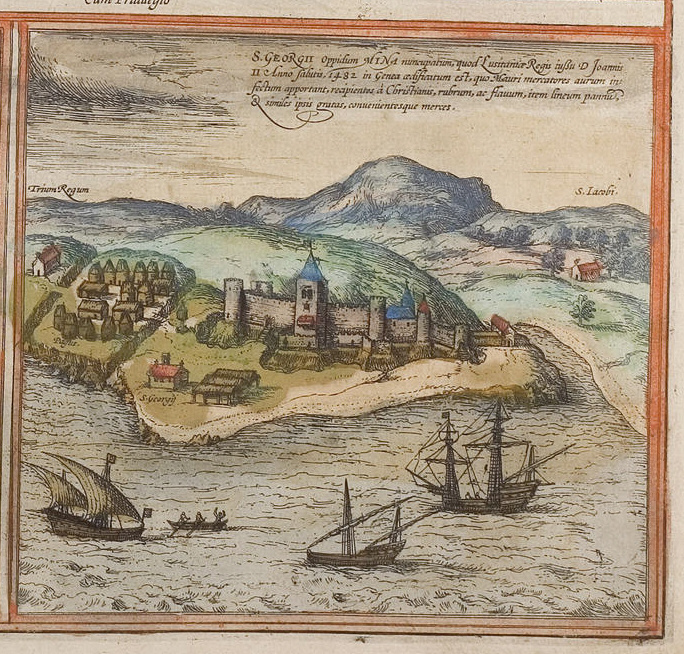 Cum Privilegio
S. GEORGII Oppidum MINA nuncupatum, quod Lusitaniæ Regis iussu D Joannis
II Anno salutis, 1482 in Genea ædificatum est, quo Mauri mercatores aurum in:
fectum apportant, recipientes à Christianis, rubrum, ac flauum, item lineum pannū,
& similes ipsis gratas, convenientesque merces.
Trium Regum
S. Iacobi.
S. Georgij